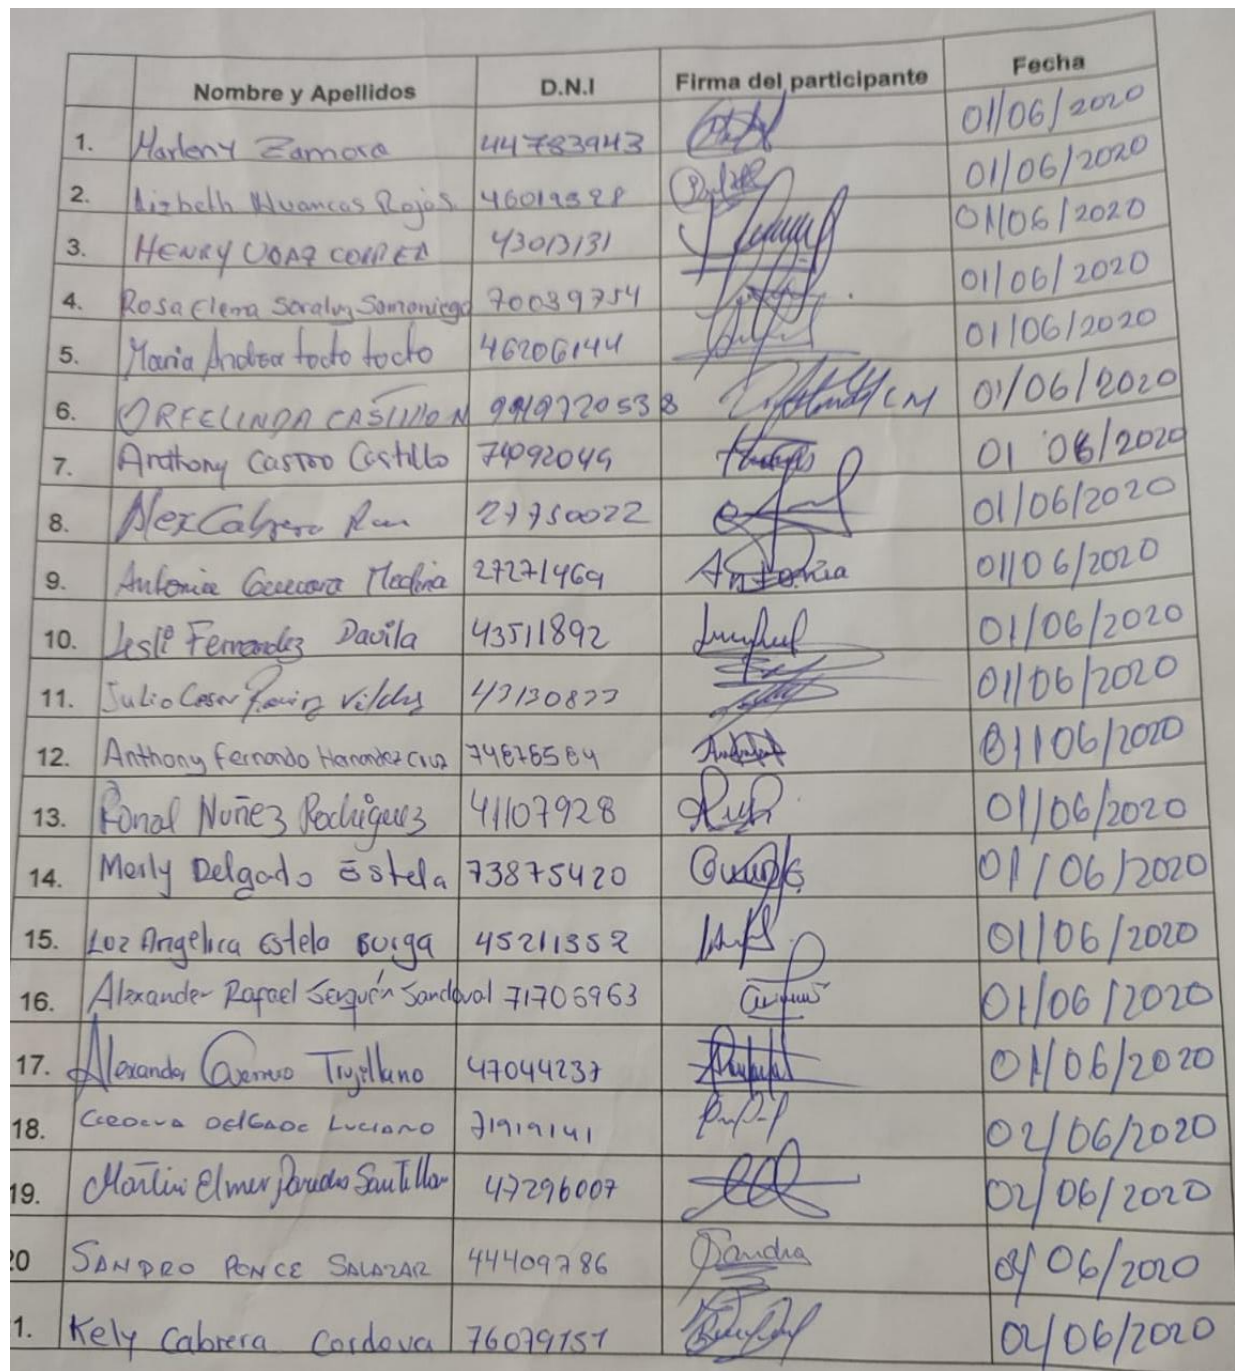 Nombre y Apellidos D.N.I Firma del participante Fecha
1. Marleny Zamora 44783943 01/06/2020
2. Lizbeth Huancas Rojas 46019328 01/06/2020
3. HENRY CORREA 43013131 01/06/2020
4. Rosa Elena Soraluz Samaniego 70039754 01/06/2020
5. Maria Andrea tocto tocto 46206144 01/06/2020
6. ORFELINDA CASTILLO N CM 01/06/2020
7. Anthony Castro Castillo 74092049 01 06/2020
8. Alex Cabrera 27750022 01/06/2020
9. Antonia Guevara Medina 27271469 Antonia 01/06/2020
10. Lesli Fernandez Davila 43511892 01/06/2020
11. Julio Cesar 01/06/2020
12. Anthony Fernando Hernandez Cruz 01/06/2020
13. Ronal Nuñez Rodriguez 41107928 01/06/2020
14. Merly Delgado Estela 73875420 01/06/2020
15. Luz Angelica Estela Burga 45211352 01/06/2020
16. Alexander Rafael Serquén Sandoval 71706963 01/06/2020
17. Alexander Guerrero Trujillano 47044237 01/06/2020
18. DELGADO LUCIANO 71919141 02/06/2020
19. Martin Elmer Paredes Santillan 47296007 02/06/2020
20 SANDRO PONCE SALAZAR 44409786 Sandro 06/2020
1. Kely Cabrera Cordova 76079151 02/06/2020